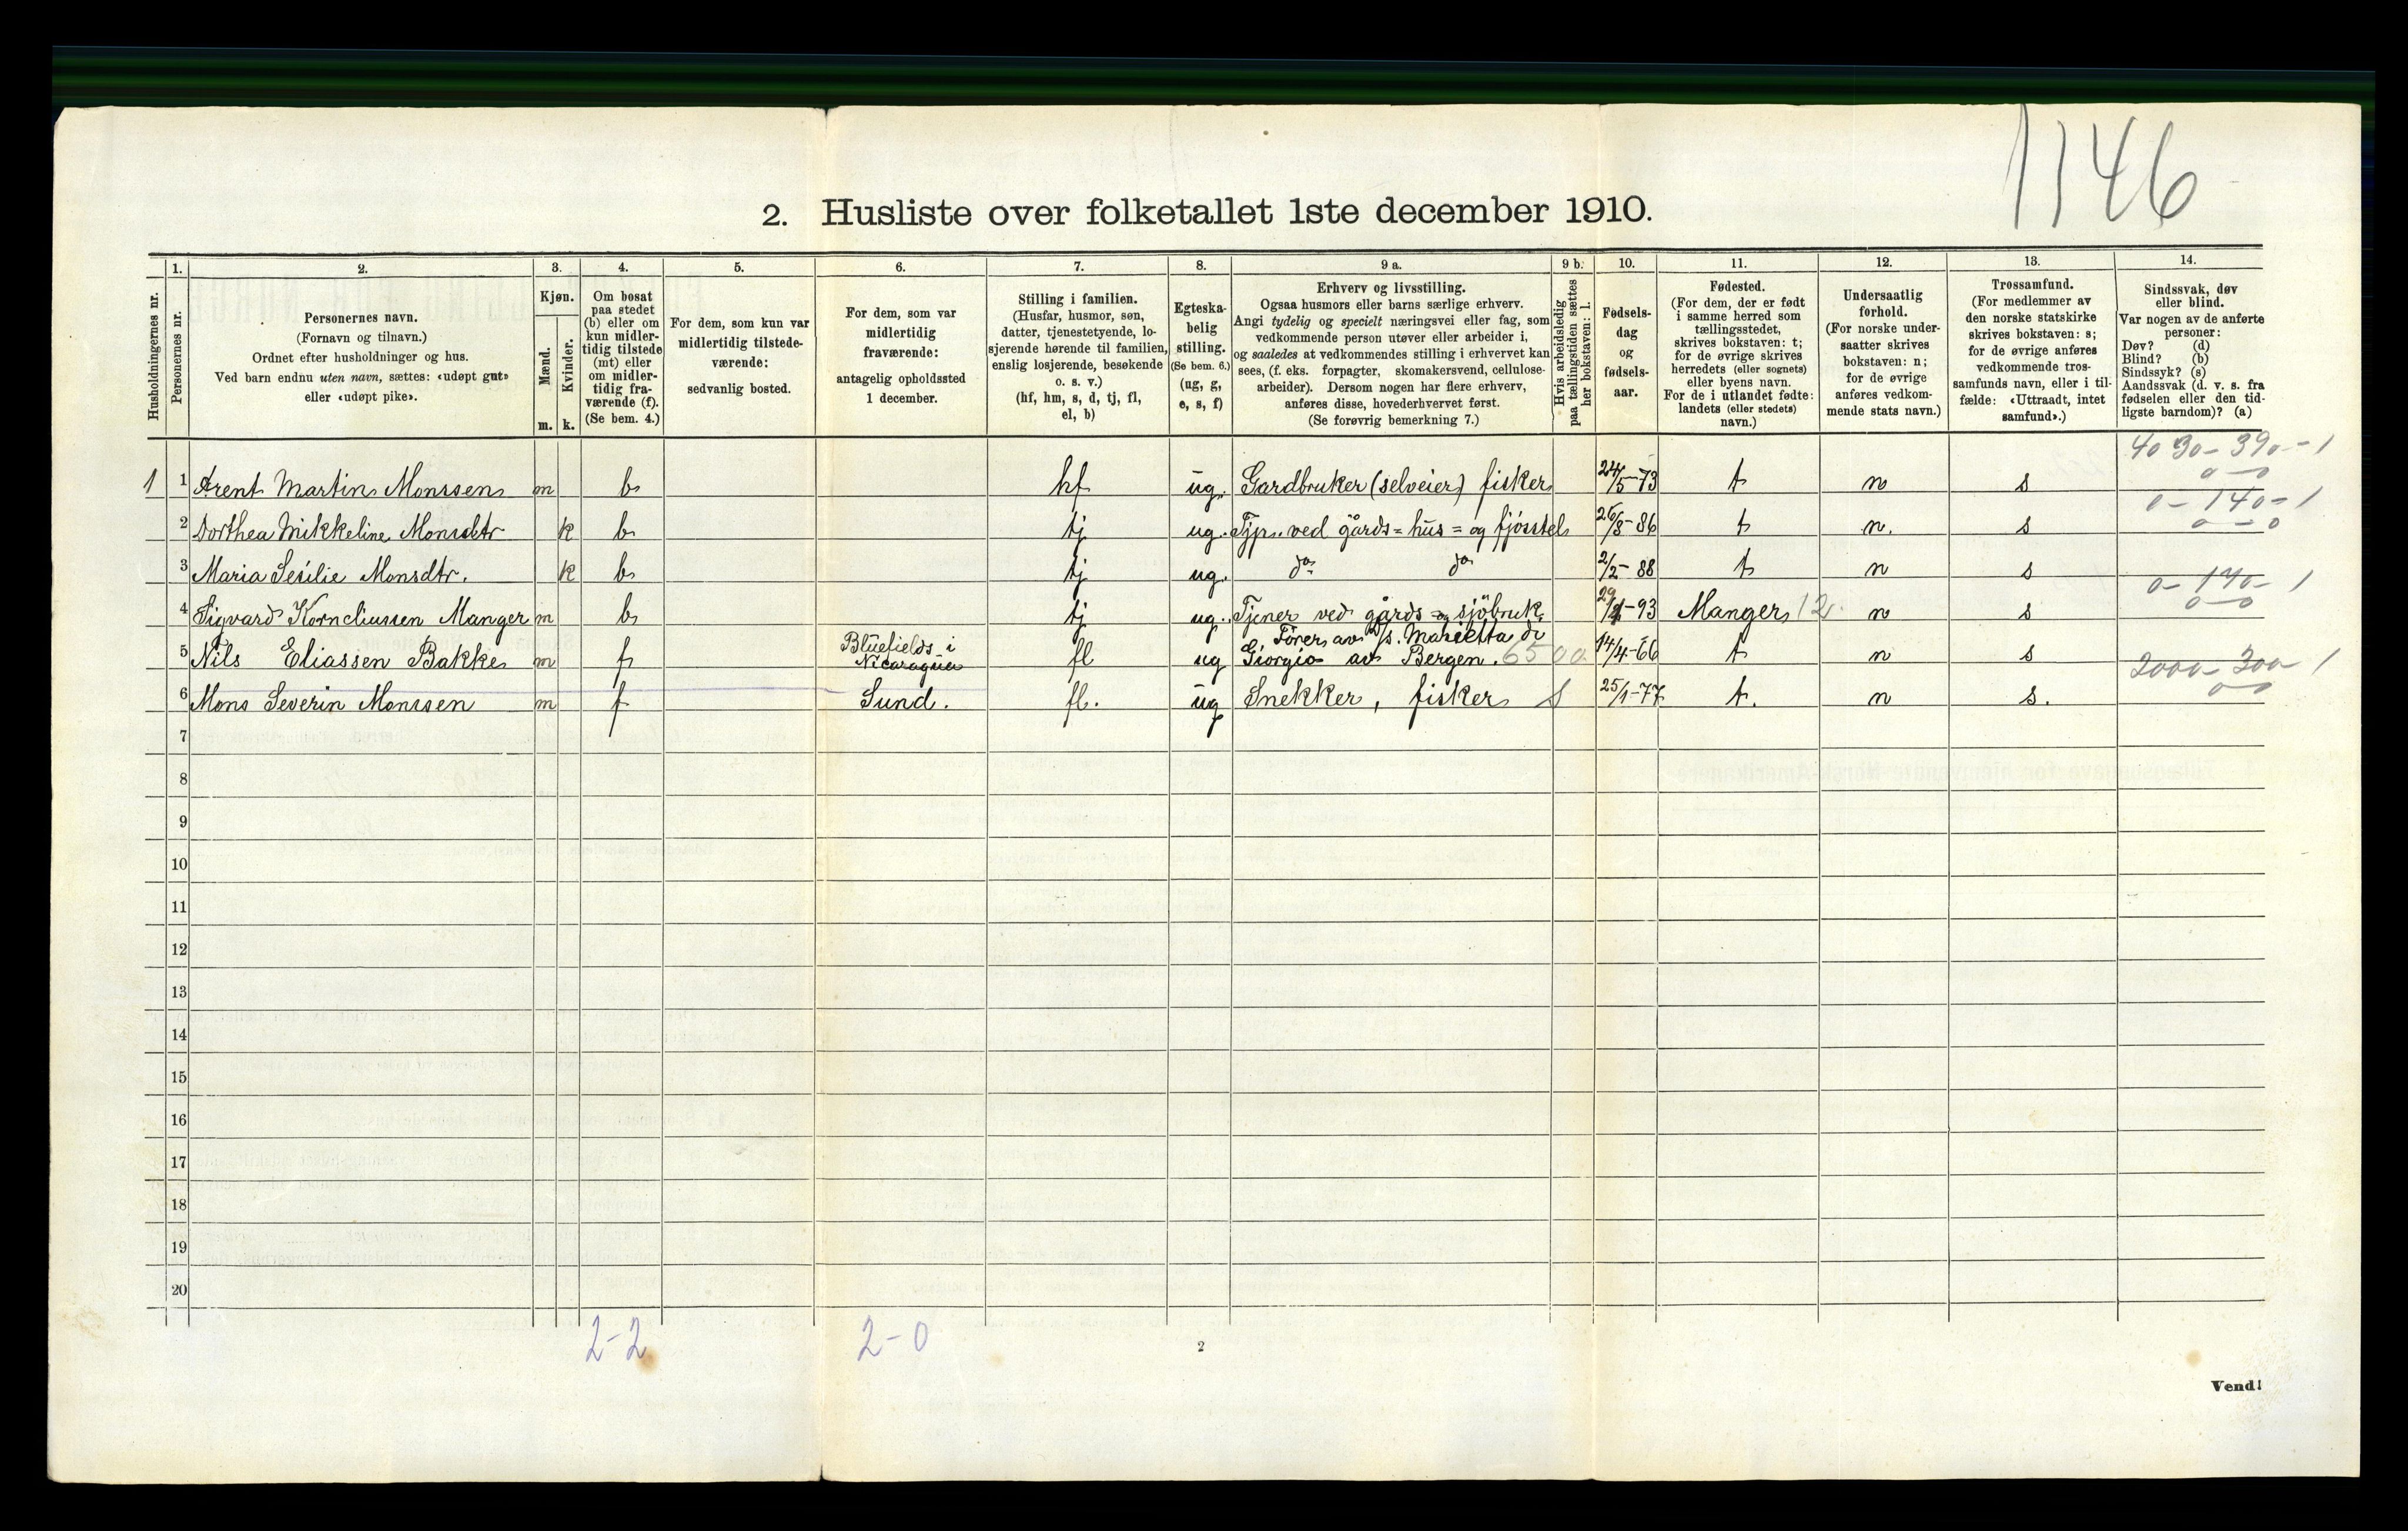 1146
2. Husliste over folketallet 1ste december 1910.
Husholdningernes nr.
1. Personernes nr.
2. Personernes navn.
(Fornavn og tilnavn.)
Ordnet efter husholdninger og hus.
Ved barn endnu uten navn, sættes: «udøpt gut»
eller «udøpt pike».
3. Kjøn.
Mænd. Kvinder.
m. k.
4. Om bosat
paa stedet
(b) eller om
kun midler-
tidig tilstede
(mt) eller
om midler-
tidig fra-
værende (f).
(Se bem. 4.)
5. For dem, som kun var
midlertidig tilstede-
værende:
sedvanlig bosted.
6. For dem, som var
midlertidig
fraværende:
antagelig opholdssted
1 december.
7. Stilling i familien.
(Husfar, husmor, søn,
datter, tjenestetyende, lo-
sjerende hørende til familien,
enslig losjerende, besøkende
o. s. v.)
(hf, hm, s, d, tj, fl,
el, b)
8. Egteska-
belig
stilling.
(Se bem. 6.)
(ug, g,
e, s, f)
9 a. Erhverv og livsstilling.
Ogsaa husmors eller barns særlige erhverv.
Angi tydelig og specielt næringsvei eller fag, som
vedkommende person utøver eller arbeider i,
og saaledes at vedkommendes stilling i erhvervet kan
sees, (f. eks. forpagter, skomakersvend, cellulose-
arbeider). Dersom nogen har flere erhverv,
anføres disse, hovederhvervet først.
(Se forøvrig bemerkning 7.)
9 b. Hvis arbeidsledig
paa tællingstiden sættes
her bokstaven: l.
10. Fødsels-
dag
og
fødsels-
aar.
11. Fødested.
(For dem, der er født
i samme herred som
tællingsstedet,
skrives bokstaven: t;
for de øvrige skrives
herredets (eller sognets)
eller byens navn.
For de i utlandet fødte:
landets (eller stedets)
navn.)
12. Undersaatlig
forhold.
(For norske under-
saatter skrives
bokstaven: n;
for de øvrige
anføres vedkom-
mende stats navn.)
13. Trossamfund.
(For medlemmer av
den norske statskirke
skrives bokstaven: s;
for de øvrige anføres
vedkommende tros-
samfunds navn, eller i til-
fælde: «Uttraadt, intet
samfund».)
14. Sindssvak, døv
eller blind.
Var nogen av de anførte
personer:
Døv? (d)
Blind? (b)
Sindssyk? (s)
Aandssvak (d. v. s. fra
fødselen eller den tid-
ligste barndom)? (a)
4030-390-1
0-0
1 1 Arent Martin Monssen m b hf ug. Gardbruker (selveier) fisker 24/5-73 t n s
0-140-1
0-0
2 Dorthea Mikkeline Monsdtr k b tj ug. Tjen. ved gårds= hus= og fjösstel 26/8-86 t n. s
3 Maria Sesilie Monsdtr. k b tj ug. do do 2/2-88 t n s
0-140-1
0-0
4 Sigvard Korneliussen Manger m b tj ug. Tjener ved gårds= og sjöbruk 29/-93 Manger 12 n s
5 Nils Eliassen Bakke m f Bluefields i
Nicaragua fl ug Förer av D/s. Marietta di
Giorgio av Bergen. 6500 14/4-66 t n s
2000-300-1
0-0
6 Mons Severin Monssen m f Sund. fl. ug Snekker, fisker s 25/1-77 t. n s.
7
8
9
10
11
12
13
14
15
16
17
18
19
20
2-2 2-0
2
Vend!